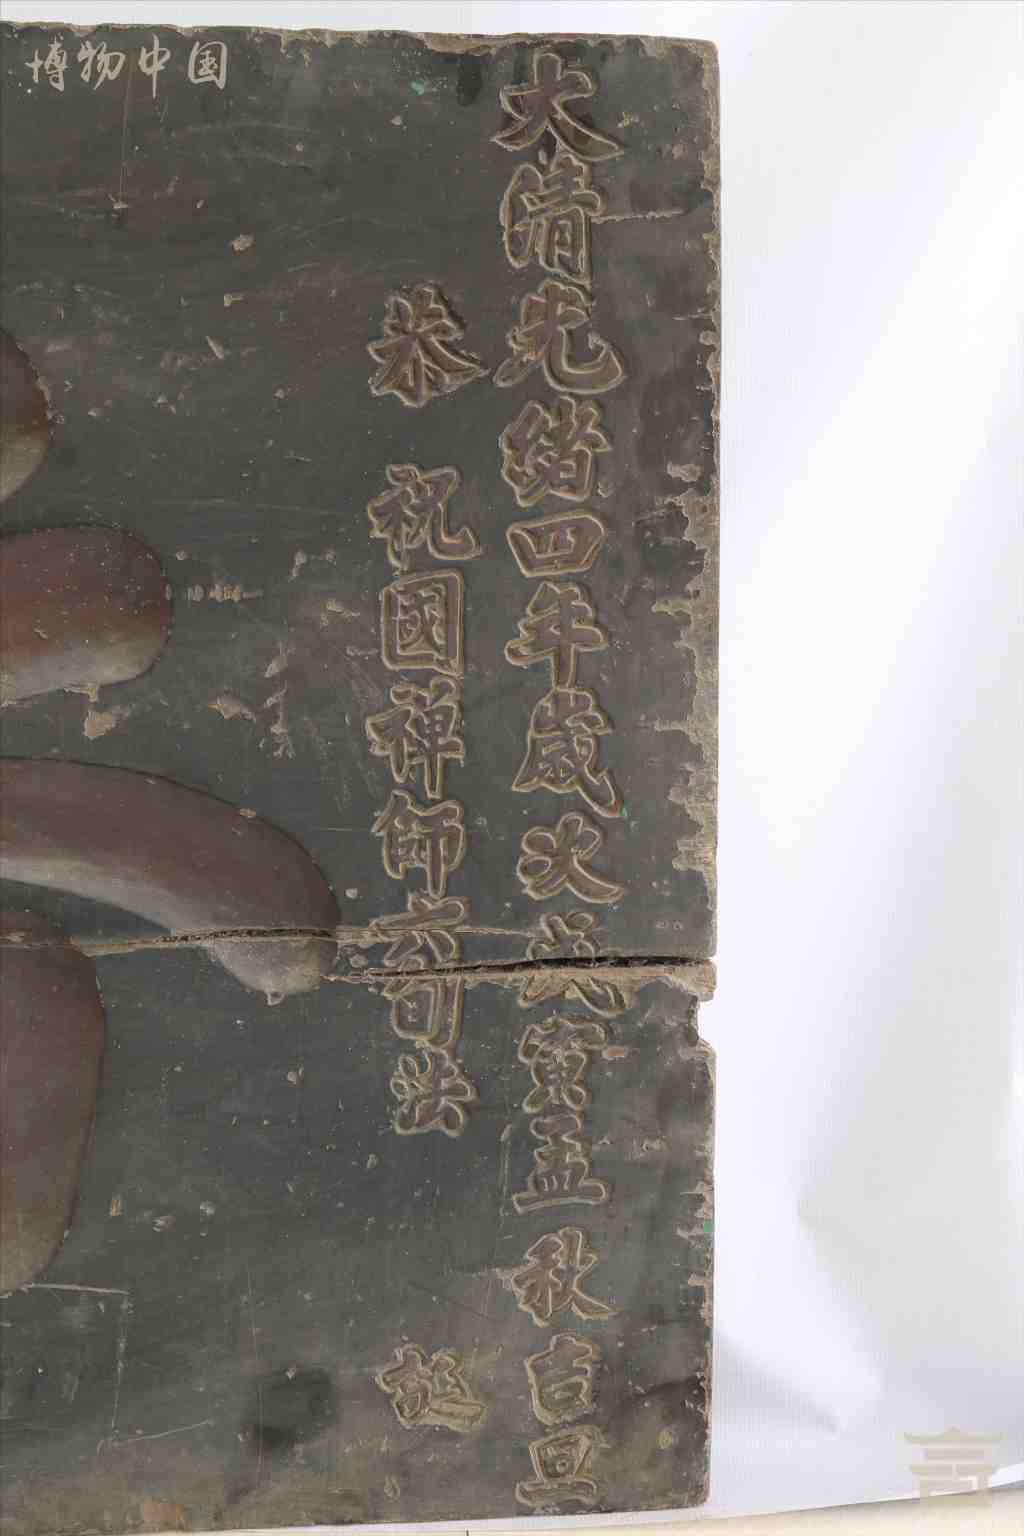 大清光緒四年歲次戊寅孟秋吉旦
恭祝國禪師六旬法誕
博物中国